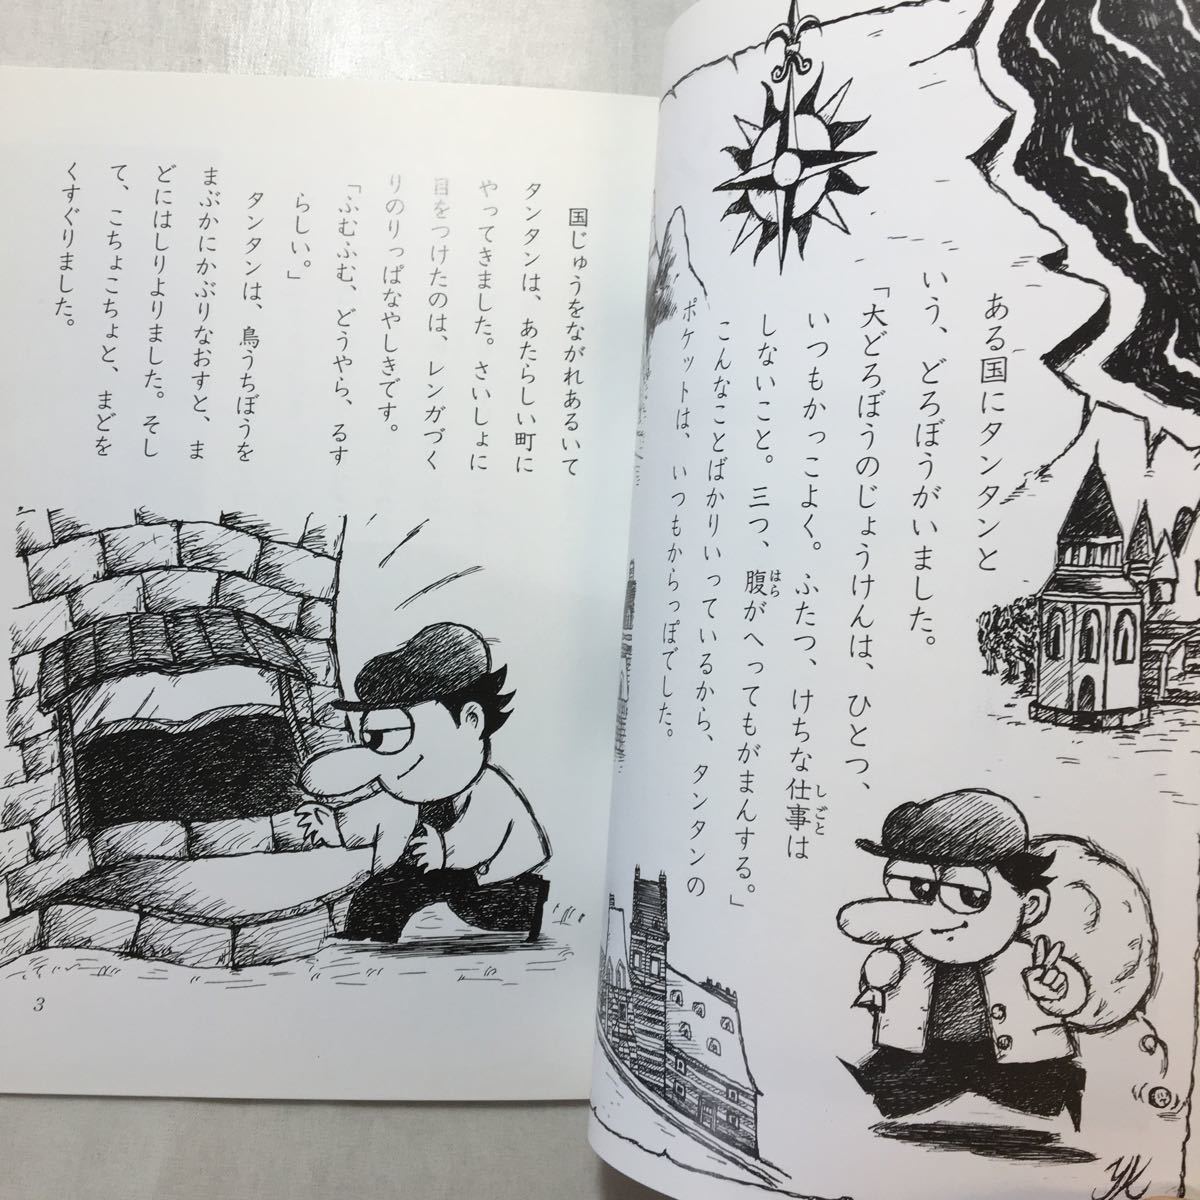 ある国にタンタンと
いう、どろぼうがいました。
「大どろぼうのじょうけんは、ひとつ、
いつもかっこよく。ふたつ、けちな仕事は
しごと
しないこと。三つ、腹がへってもがまんする。」
はら
こんなことばかりいっているから、タンタンの
ポケットは、いつもからっぽでした。
YK
国じゅうをながれあるいて
タンタンは、あたらしい町に
やってきました。さいしょに
目をつけたのは、レンガづく
りのりっぱなやしきです。
「ふむふむ、どうやら、るす
らしい。」
タンタンは、鳥うちぼうを
まぶかにかぶりなおすと、ま
どにはしりよりました。そし
て、こちょこちょと、まどを
くすぐりました。
3